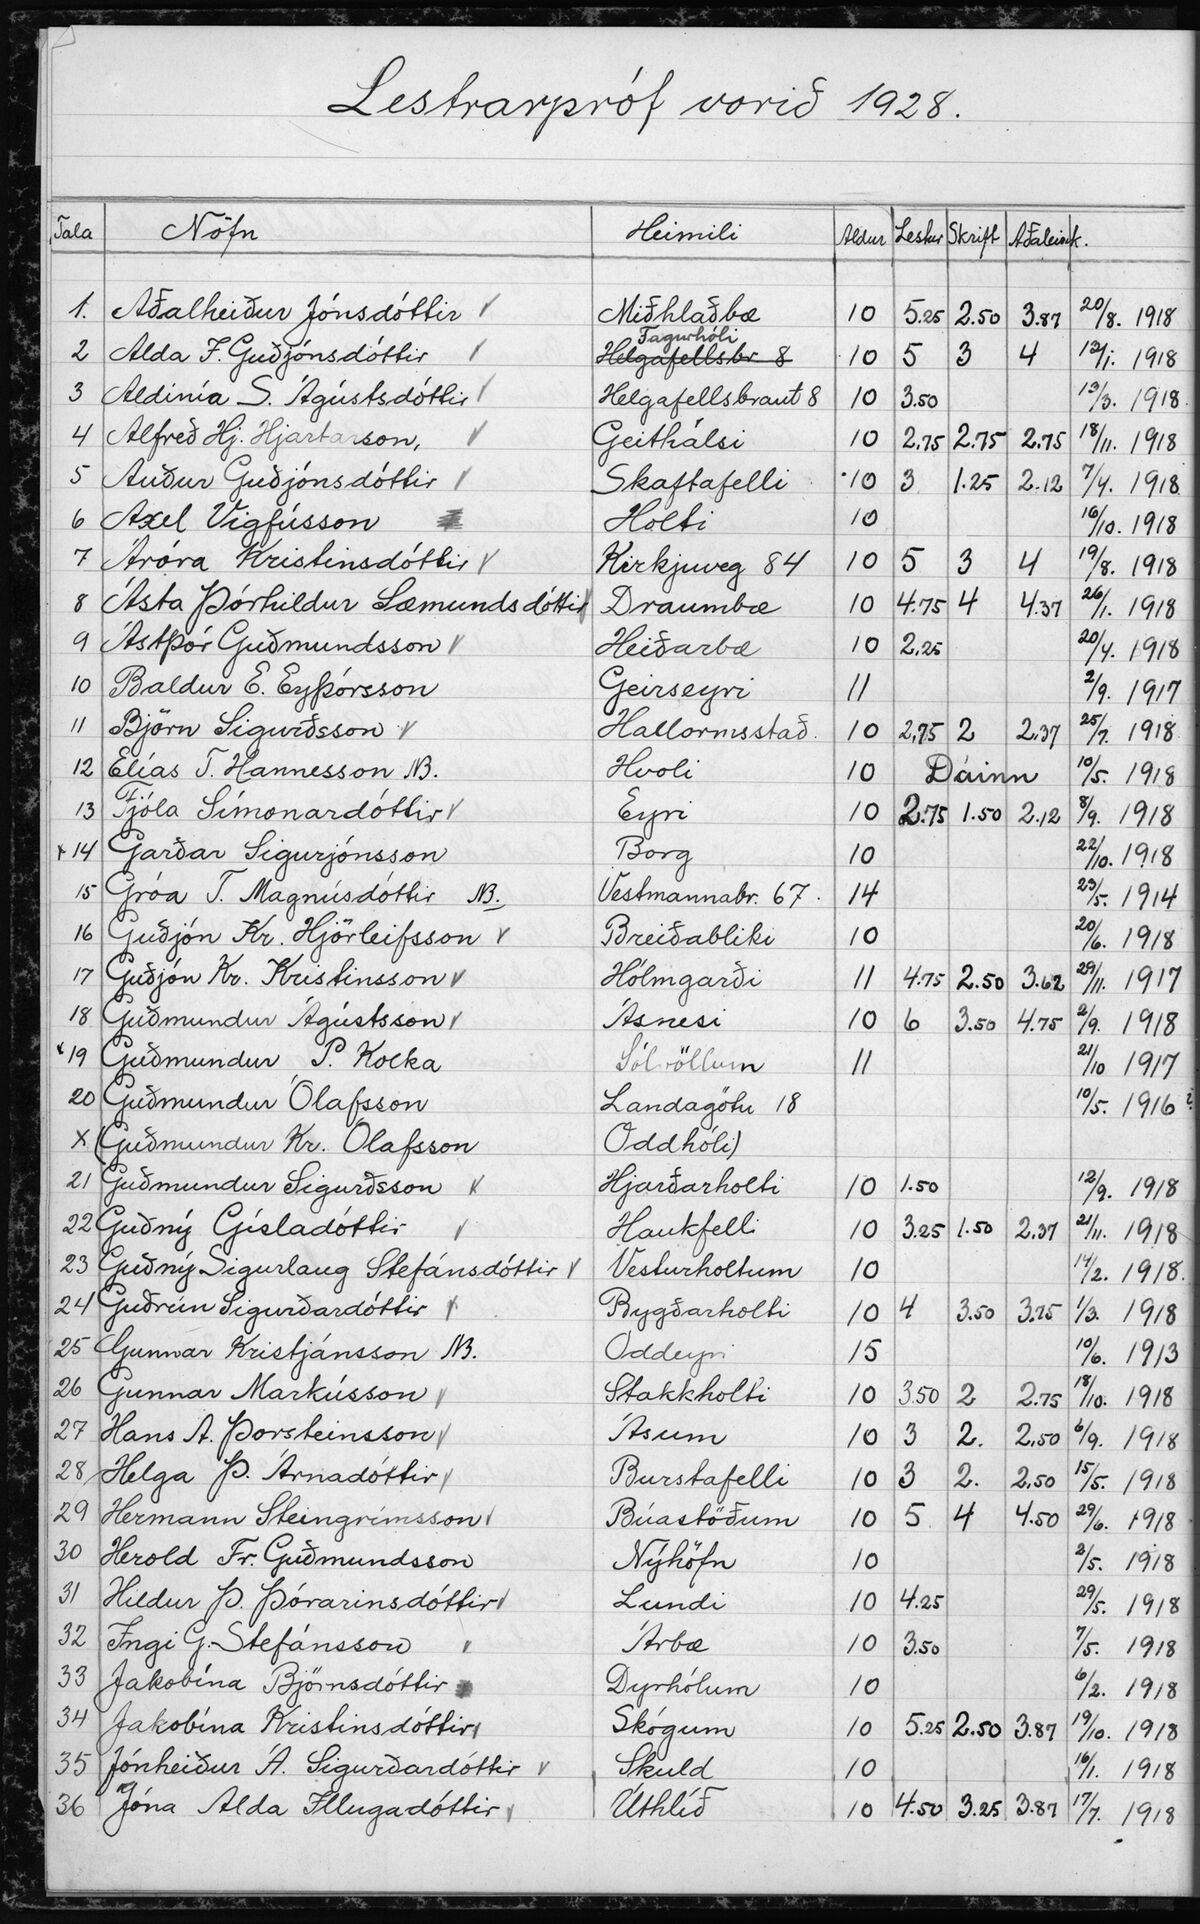 Lestrarpróf vorið 1928.
Tala Nöfn Heimili Aldur Lestur Skrift Aðaleink.
1. Aðalheiður Jónsdóttir ✓ Miðhlaðbæ 10 5.25 2.50 3.87 20/8. 1918
Fagurhóli
2 Alda F. Guðjónsdóttir ✓ Helgafellsbr 8 10 5 3 4 12/1. 1918
3 Aldinía S. Ágústsdóttir ✓ Helgafellsbraut 8 10 3.50 13/3. 1918
4 Alfreð Hj. Hjartarson, ✓ Geithálsi 10 2.75 2.75 2.75 18/11. 1918
5 Auður Guðjónsdóttir ✓ Skaftafelli 10 3 1.25 2.12 7/4. 1918
6 Axel Vigfússon Holti 10 16/10. 1918
7 Áróra Kristinsdóttir ✓ Kirkjuveg 84 10 5 3 4 19/8. 1918
8 Ásta Þórhildur Sæmundsdóttir ✓ Draumbæ 10 4.75 4 4.37 26/1. 1918
9 Ástþór Guðmundsson ✓ Heiðarbæ 10 2.25 20/4. 1918
10 Baldur E. Eyþórsson Geirseyri 11 2/9. 1917
11 Björn Sigurðsson ✓ Hallormsstað. 10 2.75 2 2.37 25/7. 1918
12 Elías T. Hannesson NB. Hvoli 10 Dáinn 10/5. 1918
13 Fjóla Símonardóttir ✓ Eyri 10 2.75 1.50 2.12 8/9. 1918
x 14 Garðar Sigurjónsson Borg 10 22/10. 1918
15 Gróa T. Magnúsdóttir NB. Vestmannabr. 67. 14 23/5. 1914
16 Guðjón Kr. Hjörleifsson ✓ Breiðabliki 10 20/6. 1918
17 Guðjón Kr. Kristinsson ✓ Hólmgarði 11 4.75 2.50 3.62 29/11. 1917
18 Guðmundur Ágústsson ✓ Ásnesi 10 6 3.50 4.75 2/9. 1918
x 19 Guðmundur P. Kolka Sólvöllum 11 21/10 1917
20 Guðmundur Ólafsson Landagötu 18 10/5. 1916 ?
X (Guðmundur Kr. Ólafsson Oddhóli)
21 Guðmundur Sigurðsson ✓ Hjarðarholti 10 1.50 12/9. 1918
22 Guðný Gísladóttir ✓ Haukfelli 10 3.25 1.50 2.37 21/11. 1918
23 Guðný Sigurlaug Stefánsdóttir ✓ Vesturholtum 10 14/2. 1918.
24 Guðrún Sigurðardóttir ✓ Bygðarholti 10 4 3.50 3.75 1/3. 1918
25 Gunnar Kristjánsson NB. Oddeyri 15 10/6. 1913
26 Gunnar Markússon ✓ Stakkholti 10 3.50 2 2.75 18/10. 1918
27 Hans A. Þorsteinsson ✓ Ásum 10 3 2. 2.50 6/9. 1918
28 Helga Þ. Árnadóttir ✓ Burstafelli 10 3 2. 2.50 15/5. 1918
29 Hermann Steingrímsson ✓ Búastöðum 10 5 4 4.50 29/6. 1918
30 Herold Fr. Guðmundsson Nýhöfn 10 2/5. 1918
31 Hildur Þ. Þórarinsdóttir ✓ Lundi 10 4.25 29/5. 1918
32 Ingi G. Stefánsson ✓ Árbæ 10 3.50 7/5. 1918
33 Jakobína Björnsdóttir Dyrhólum 10 6/2. 1918
34 Jakobína Kristinsdóttir ✓ Skógum 10 5.25 2.50 3.87 19/10. 1918
35 Jónheiður Á. Sigurðardóttir ✓ Skuld 10 16/1. 1918
36 Jóna Alda Illugadóttir ✓ Úthlíð 10 4.50 3.25 3.87 17/7. 1918